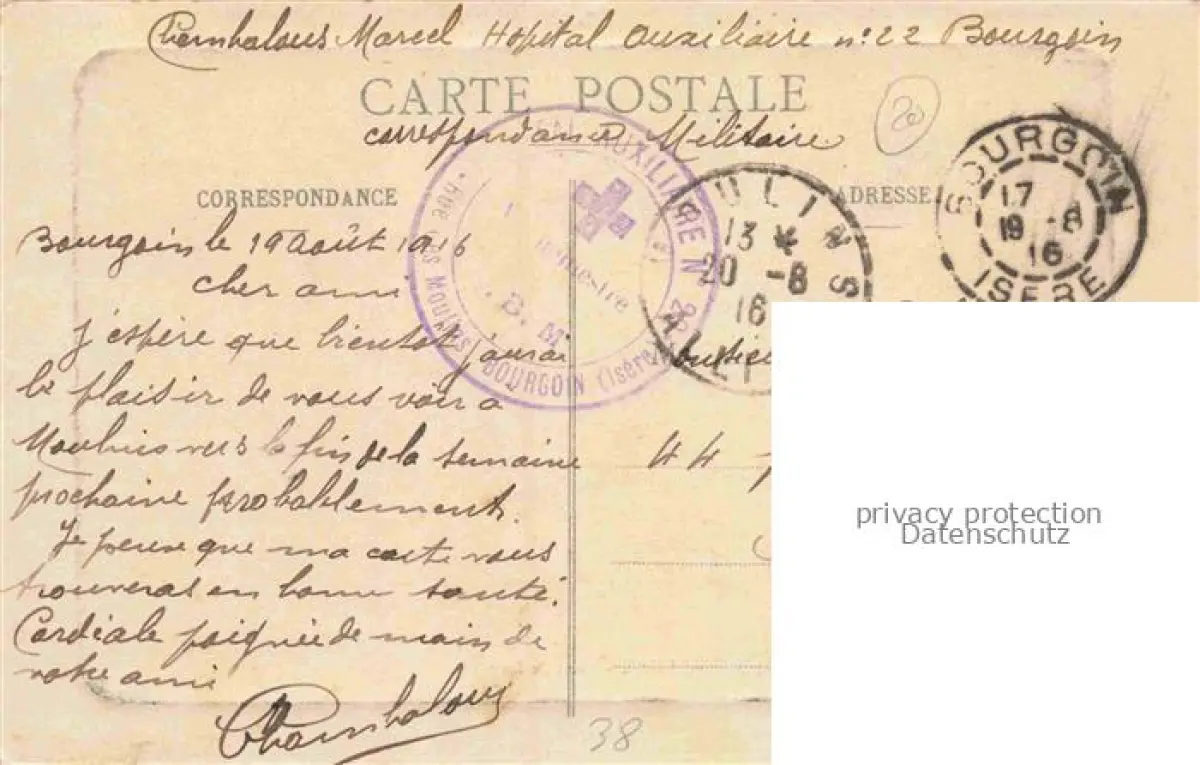 Chambalous Marcel Hopital Auxiliaire n°22 Bourgoin
CARTE POSTALE
20
correspondance Militaire
CORRESPONDANCE
ADRESSE
AUXILIAIRE N 22
des Moulins BOURGOIN (Isère)
B. M
MOULINS
13 *
20 -8
16
ALLIER
BOURGOIN
17
19 -8
16
ISERE
Bourgoin le 19 Août 1916
Cher ami
J'espère que bientot j'aurai
le plaisir de vous voir a
Moulins vers la fin de la semaine
prochaine probablement.
Je pense que ma carte vous
trouveras en bonne santé.
Cordiale poignée de main de
votre ami
Chambalous
44
38
privacy protection
Datenschutz